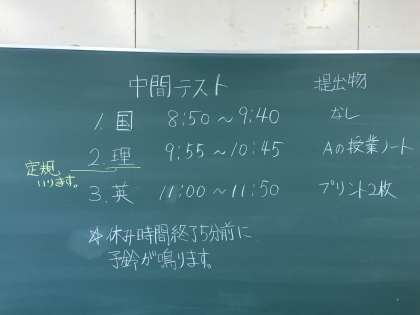 中間テスト 提出物
1. 国 8:50～9:40 なし
2. 理 9:55～10:45 Aの授業ノート
定規
いります。
3. 英 11:00～11:50 プリント2枚
☆休み時間終了5分前に
予鈴が鳴ります。